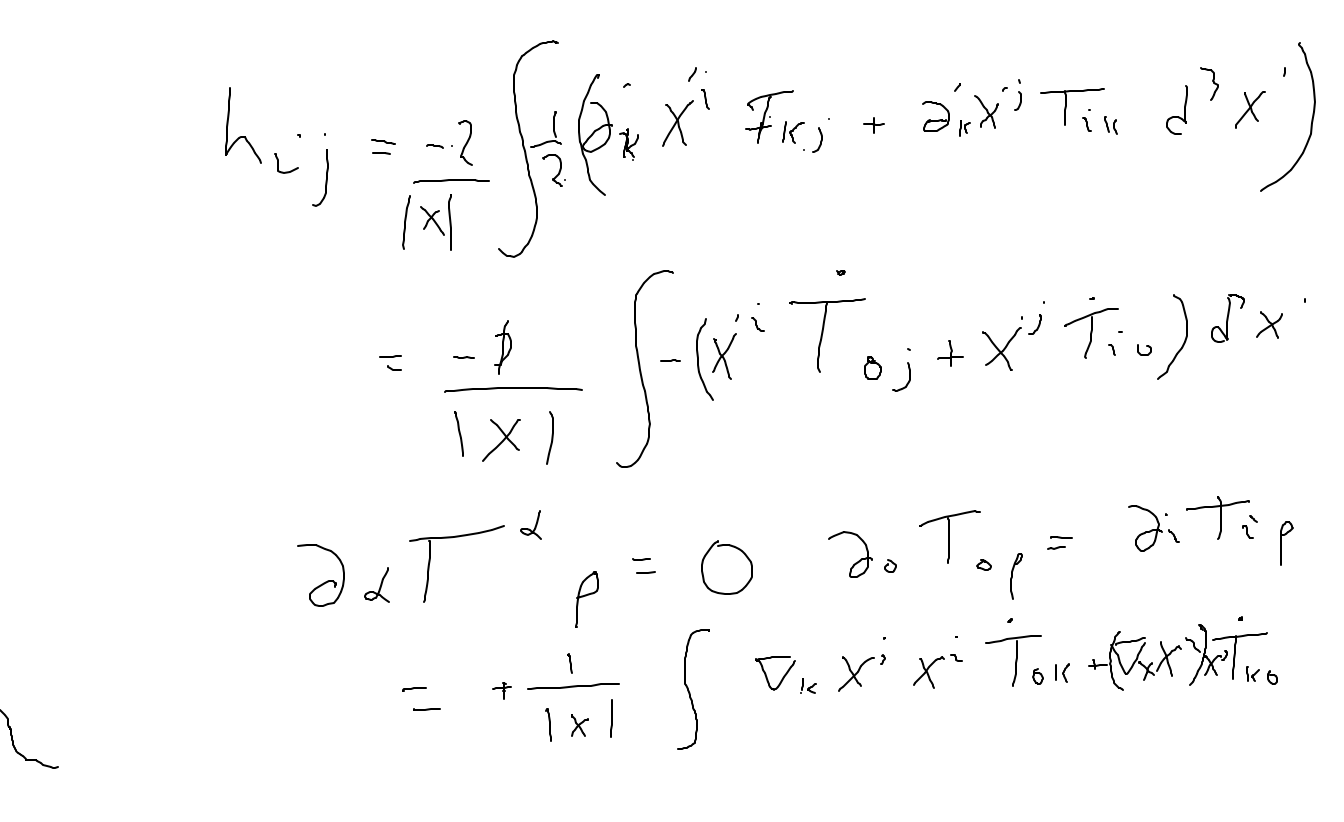 h_{ij} = \frac{-2}{|x|} \int \frac{1}{2} ( ∂'_k x'^i T_{kj} + ∂'_k x'^j T_{ik} d^3 x' )
= \frac{-1}{|x|} \int -( x'^i \dot{T}_{0j} + x'^j \dot{T}_{i0} ) d^3 x'
∂_α T^α_ρ = 0   ∂_0 T_{0ρ} = ∂_i T_{iρ}
= + \frac{1}{|x|} \int ∇_k x^j x^i \dot{T}_{0k} + (∇_k x^i) x^j \dot{T}_{k0}